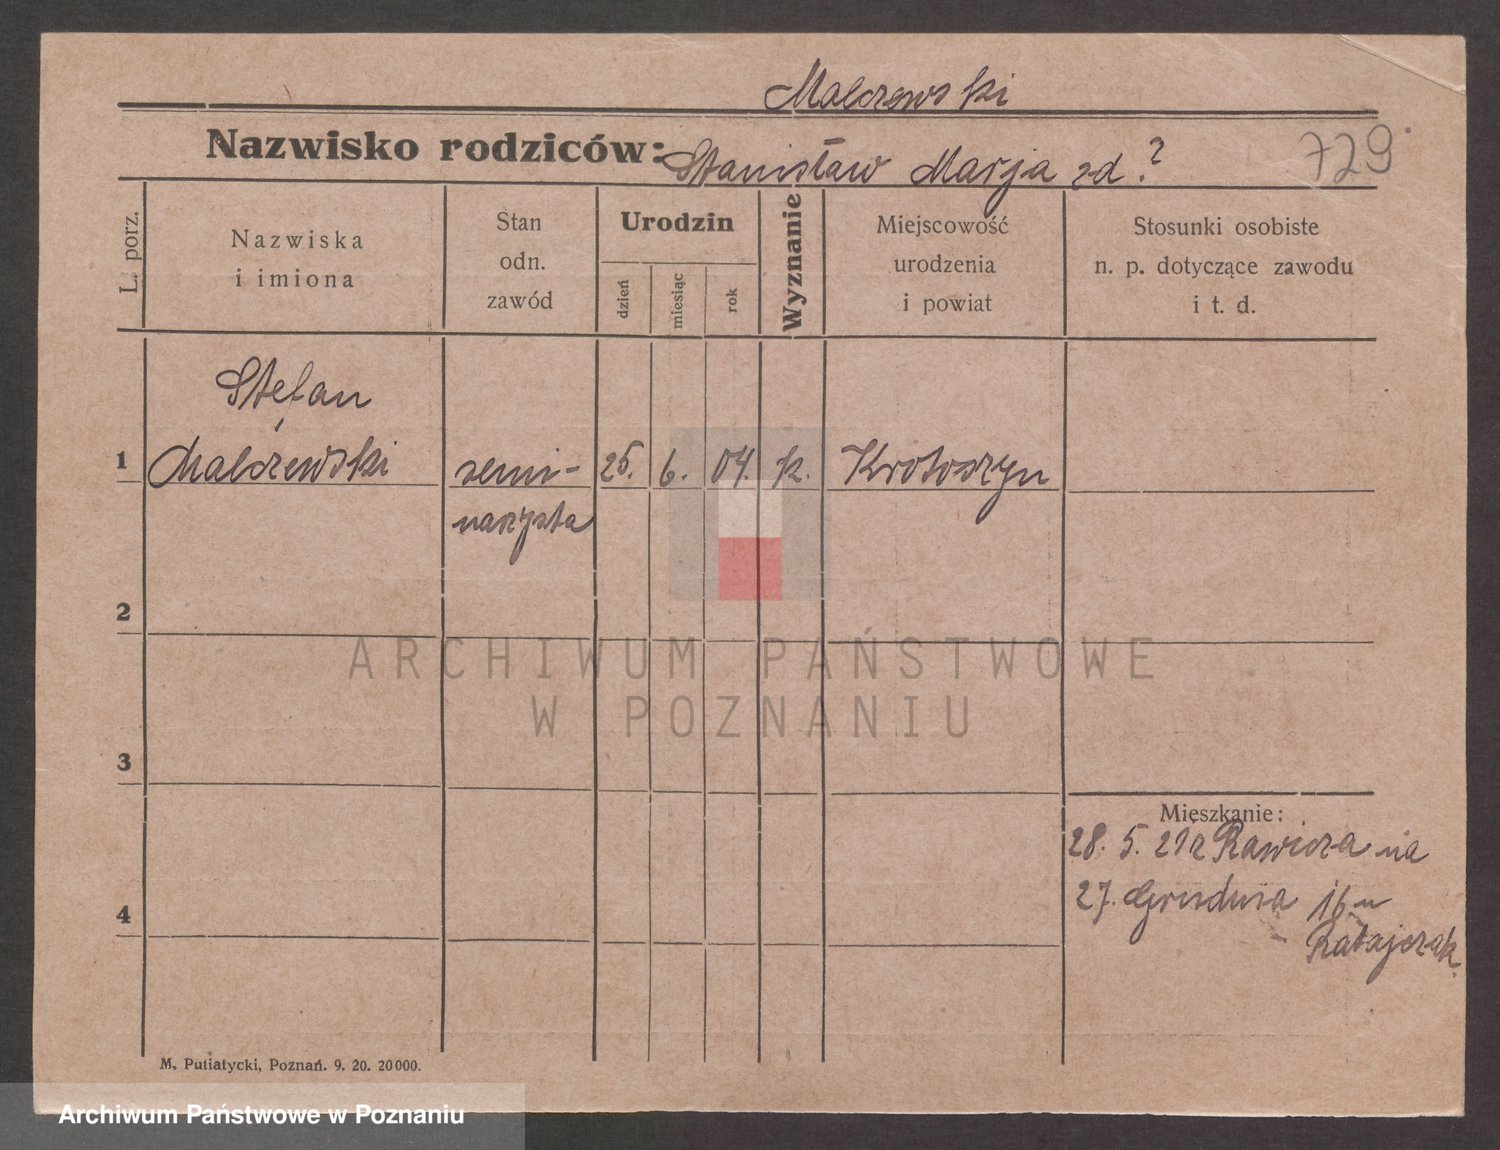 Malczewski
Nazwisko rodziców: Stanisław Marja zd. ?
729
L. porz.
Nazwiska
i imiona
Stan
odn.
zawód
Urodzin
dzień
miesiąc
rok
Wyznanie
Miejscowość
urodzenia
i powiat
Stosunki osobiste
n. p. dotyczące zawodu
i t. d.
Stefan
1 Malczewski semi- 25. 6. 04. k. Krotoszyn
narzysta
2
ARCHIWUM PAŃSTWOWE
W POZNANIU
3
Mieszkanie:
28. 5. 21 z Rawicza na
4 27. Grudnia 16 u
Ratajczak.
M. Putiatycki, Poznań. 9. 20. 20000.
Archiwum Państwowe w Poznaniu